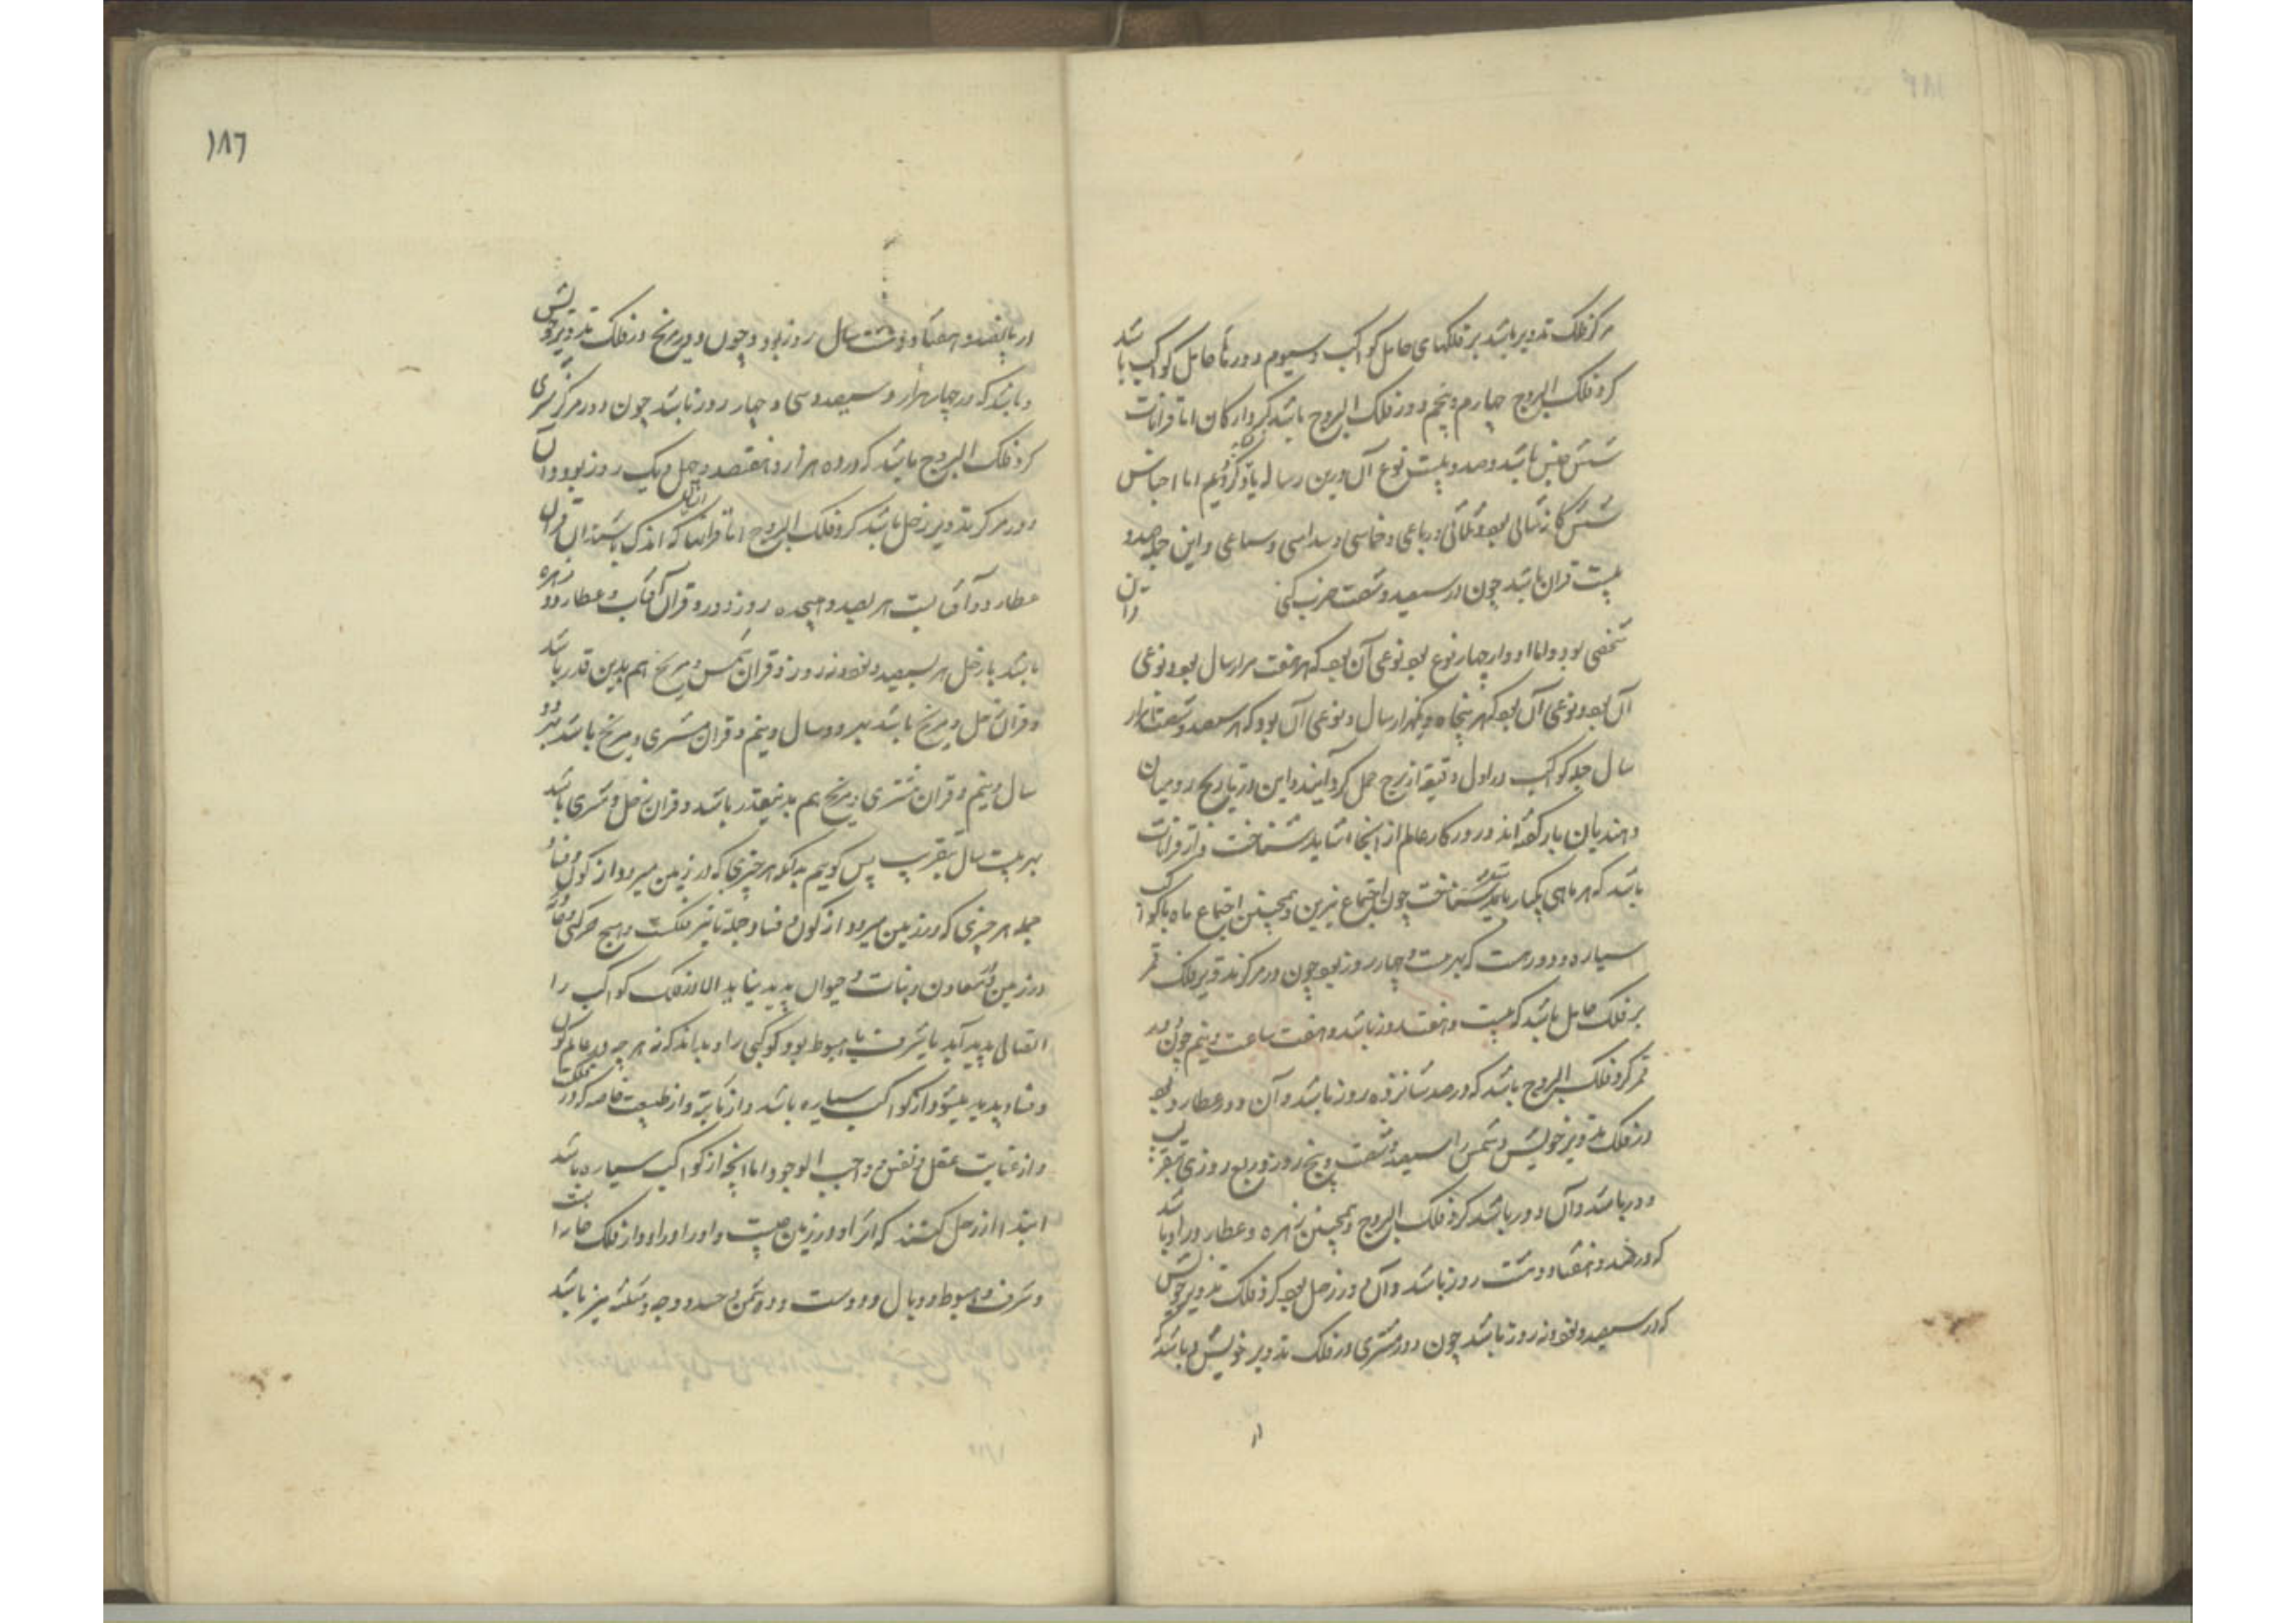 مرکز فلک تدویر باشد بر فلکهای حامل کواکب و سیوم دورها حامل کواکب باشد
کرد فلک البروج چهارم و پنجم دور فلک البروج باشد کرد ارکان اما قرانات
شش جنس باشد و صد و بیست نوع آن درین رساله یاد کردیم اما اجناس
شش کانه ثنائی بود و ثلاثی و رباعی و خماسی و سداسی و سباعی و این جمله صد و
بیست قران باشد چون در سیصد و شصت ضرب کنی
شخصی بود و اما ادوار چهار نوع بود نوعی آن بود که هر هفت هزار سال بود و نوعی
آن بود و نوعی آن بود که هر پنجاه و یکهزار سال و نوعی آن بود که هر سیصد و شصت هزار
سال جمله کواکب در اول دقیقه از برج حمل کرد آیند و این در تاریخ رومیان
و هندیان یاد کرده‌اند و روزکار عالم از اینجا شاید شناخت و از قرانات
باشد که هر ماهی یکبار باشد شناخت چون اجتماع نیرین و همچنین اجتماع ماه با کواکب
سیاره و دورست که بیست و چهار روز بود چون دور مرکز تدویر فلک قمر
بر فلک حامل باشد که بیست و هفت روز باشد و هفت ساعت و نیم چون دور
قمر کرد فلک البروج باشد که در صد شانزده روز باشد و آن دور عطارد بود
در فلک تدویر خویش و شمس را سیصد و شصت و پنج روز و ربع روزی بتقریب
دور باشد و آن دور باشد کرد فلک البروج و همچنین زهره و عطارد را دور باشد
که در پانصد و هفتاد و هشت روز باشد و آن دور زحل بود کرد فلک تدویر خویش
که در سیصد و نود و نه روز باشد چون دور مشتری در فلک تدویر خویش و باشد که
در
١٨٦
در پانصد و هفتاد و هشت سال روز بود و چون دور مریخ در فلک تدویر خویش
و باشد که در چهار هزار و سیصد و سی و چهار روز باشد چون دور مرکز مشتری
کرد فلک البروج باشد که در ده هزار و هفتصد و چهل و یک روز بود و آن
دور مرکز تدویر زحل باشد کرد فلک البروج اما قرانها که اندک باشد ازان قران
عطارد و آفتابست هر بصد و هیجده روز دور و قران آفتاب و عطارد و زهره
باشد با زحل هر بسیصد و نود و نه روز و قران شمس و مریخ هم بدین قدر باشد
و قران زحل و مریخ باشد بهر دو سال و نیم و قران مشتری و مریخ باشد بهر دو
سال و نیم و قران مشتری و مریخ هم بدینقدر باشد و قران زحل و مشتری باشد
بهر بیست سال بتقریب پس کویم بدانکه هر چیزی که در زمین میرود از کون و فساد
جمله هر چیزی که در زمین میرود از کون و فساد جمله تاثیر فلکست و هیچ حرکتی
در زمین و معادن و نبات و حیوان پدید نیاید الا از فلک کواکب را
اتصالی پدید آید یا شرف یا هبوط بود کوکبی را و بداند که نه هر چه در عالم کون
و فساد پدید میشود از کواکب سیاره باشد و از ثابته و از طبیعت خاصه که در فلکست
و از عنایت عقل و نفس و واجب الوجود اما آنچه از کواکب سیاره باشد
ابتدا از زحل کنند که اثر او در زمین چیست و او را ادوار فلک
و شرف و هبوط و وبال و دوست و دشمن و حد و وجه و مثلثه نیز باشد